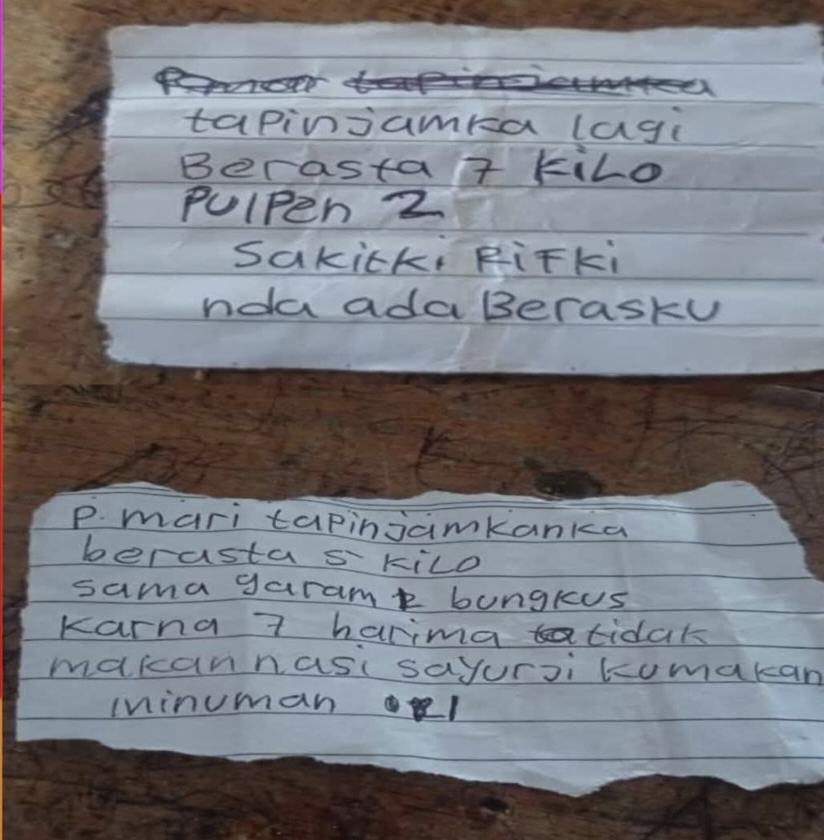 tapinjamka lagi
Berasta 7 KiLo
PulPen 2
Sakitki RiFki
nda ada Berasku
P. mari tapinjamkanka
berasta 5 KiLo
sama garam bungkus
Karna 7 harima tatidak
makan nasi sayurji kumakan
minuman